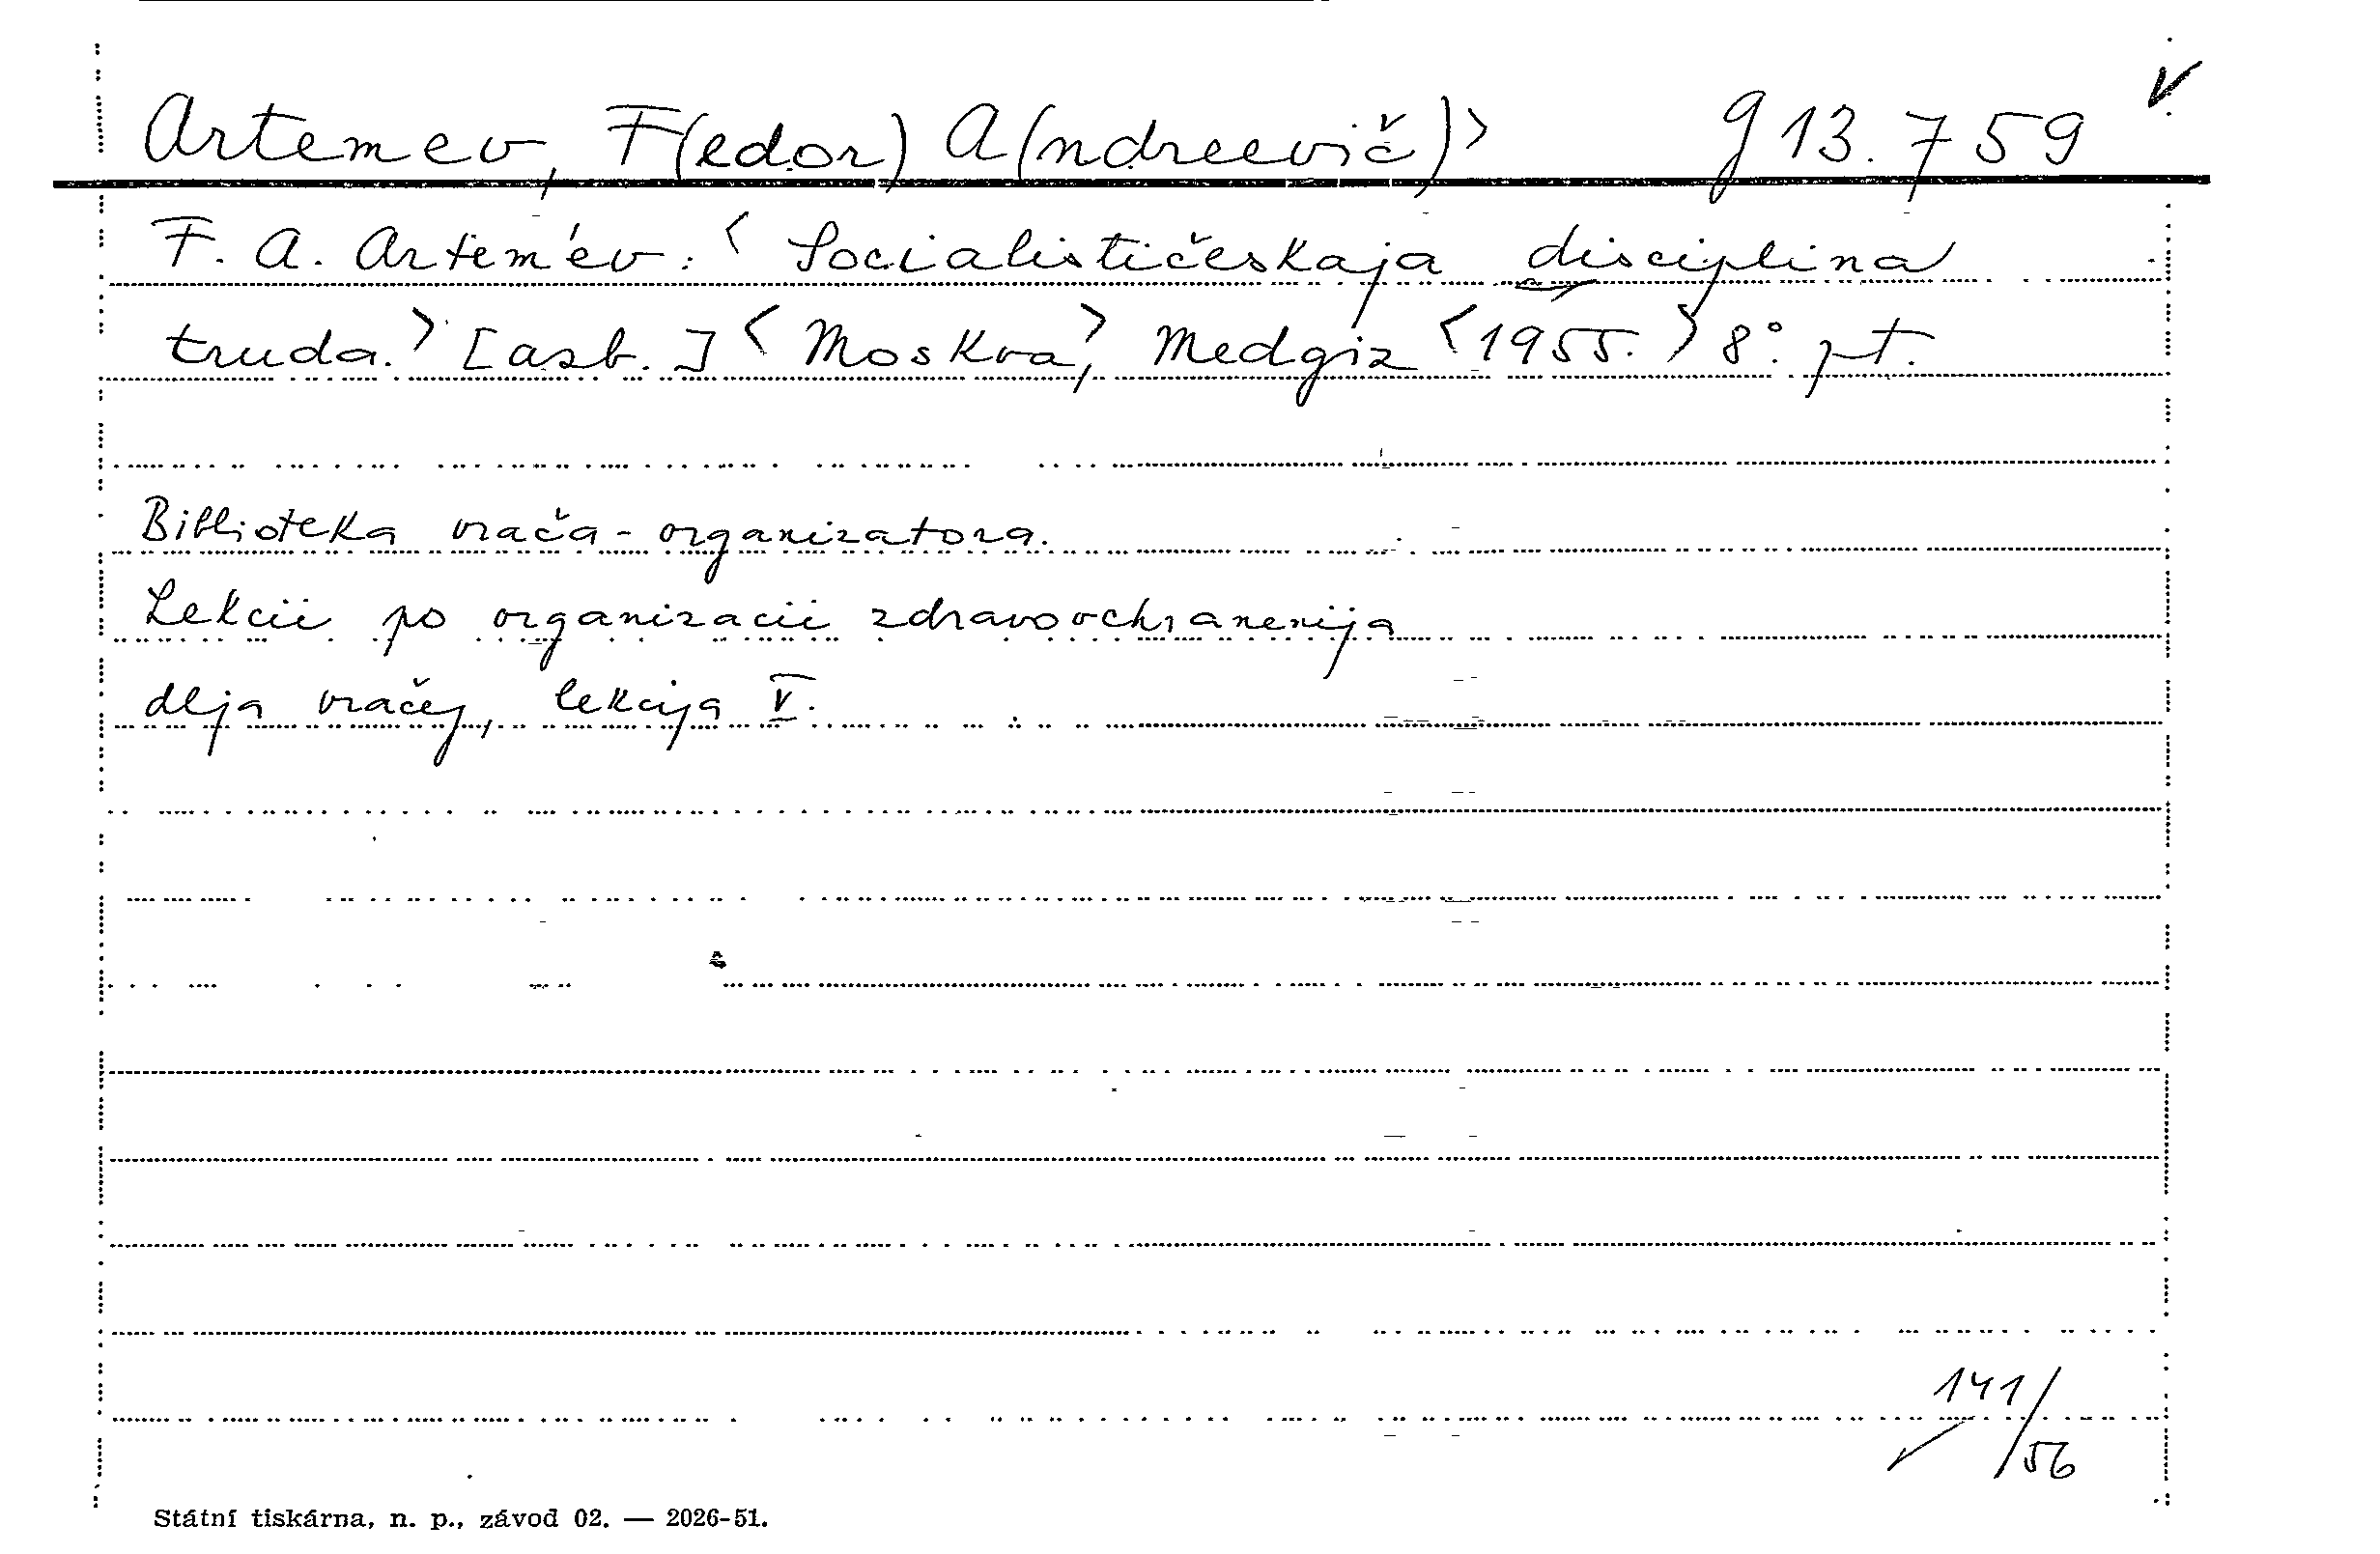 Artemev, F(edor) A(ndreevič)> g 13.759
F. A. Artem'ev: <Socialističeskaja disciplina
truda.> [azb.] <Moskva,> Medgiz <1955.> 8°. pt.
Biblioteka vrača-organizatora.
Lekcii po organizacii zdravoochranenija
dlja vračej, lekcija V.
141/56
Státní tiskárna, n. p., závod 02. — 2026-51.